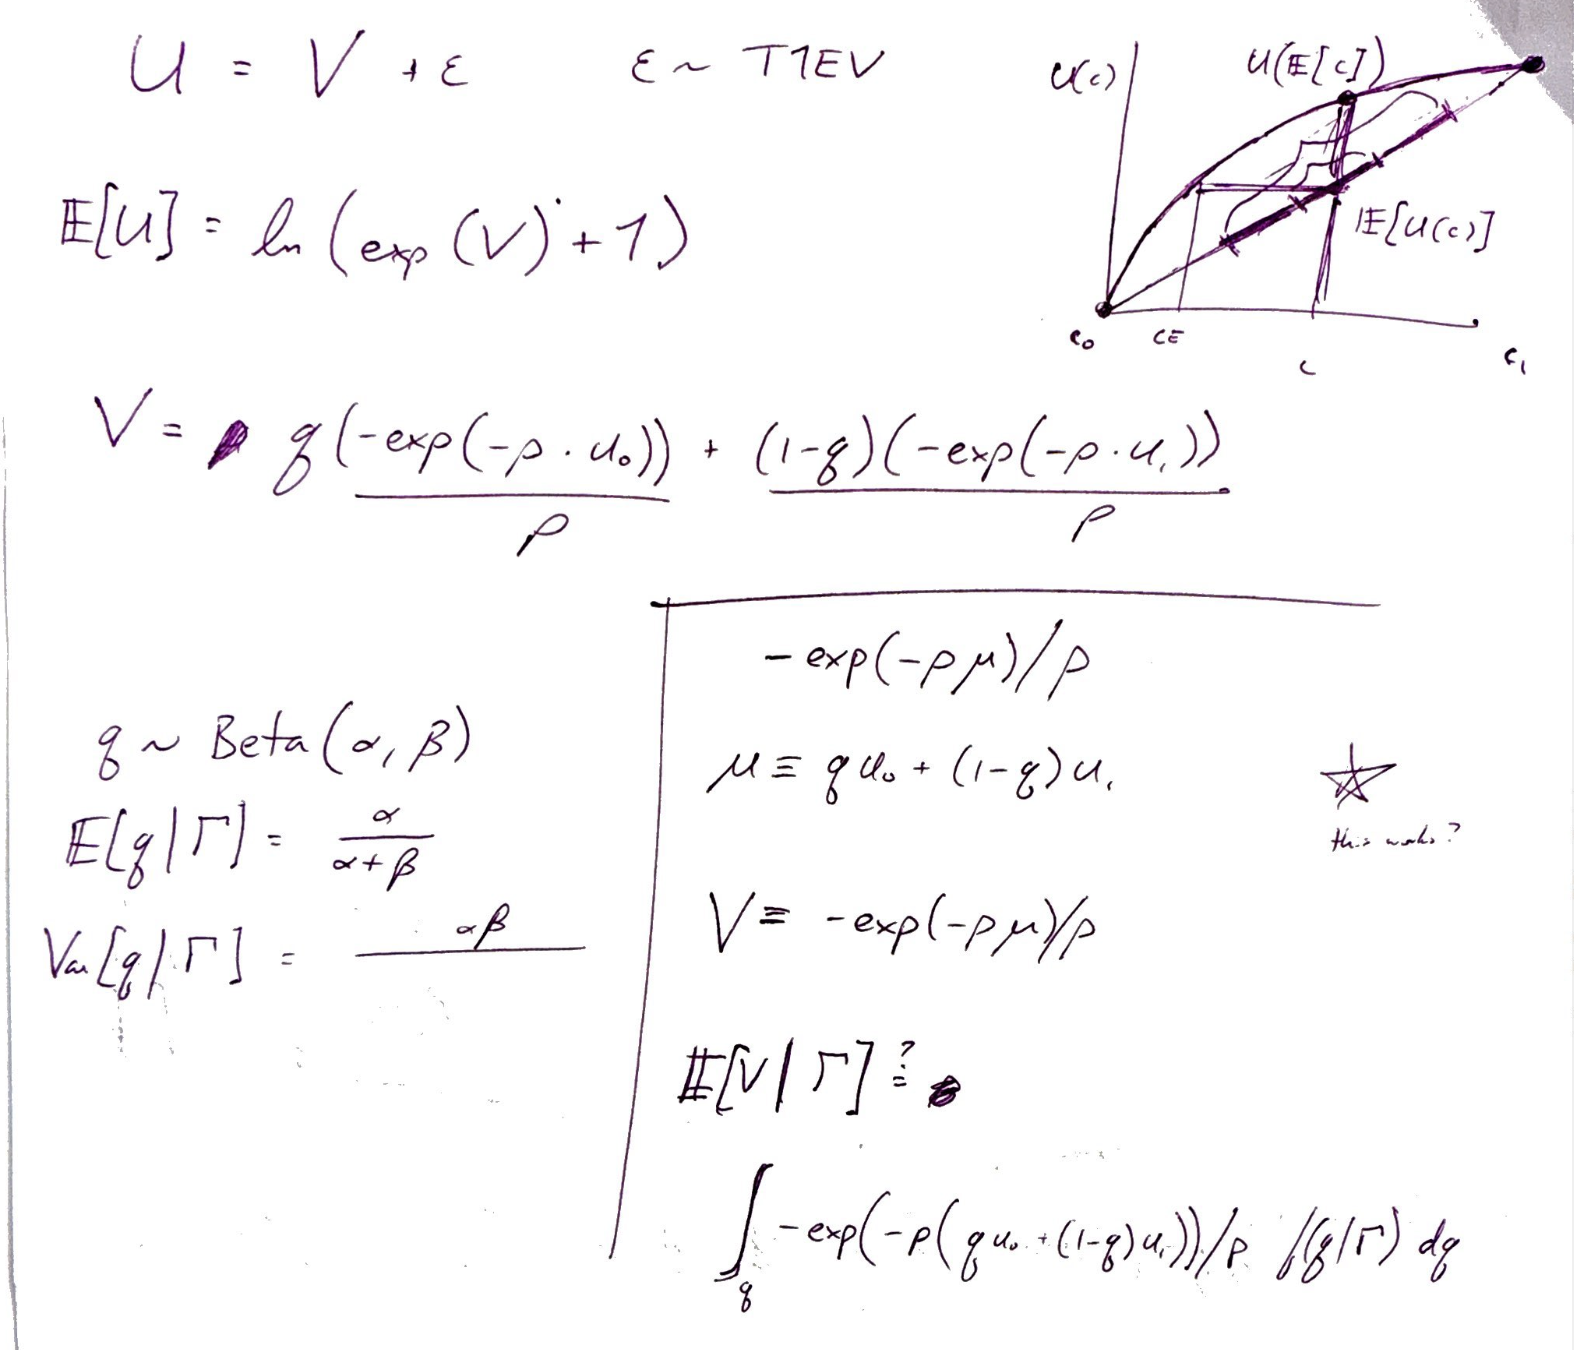 U = V + ε    ε ~ T1EV
𝔼[U] = ln(exp(V) + 1)
U(c)
U(𝔼[c])
𝔼[U(c)]
c₀
CE
c
c₁
V = q(-exp(-ρ · u₀))/ρ + (1-q)(-exp(-ρ · u₁))/ρ
q ~ Beta(α, β)
𝔼[q|Γ] = α/(α+β)
Var[q|Γ] = αβ
-exp(-ρμ)/ρ
μ ≡ q u₀ + (1-q)u₁
this works?
V ≡ -exp(-ρμ)/ρ
𝔼[V|Γ] ≟
∫q -exp(-ρ(q u₀ + (1-q)u₁))/ρ f(q|Γ) dq